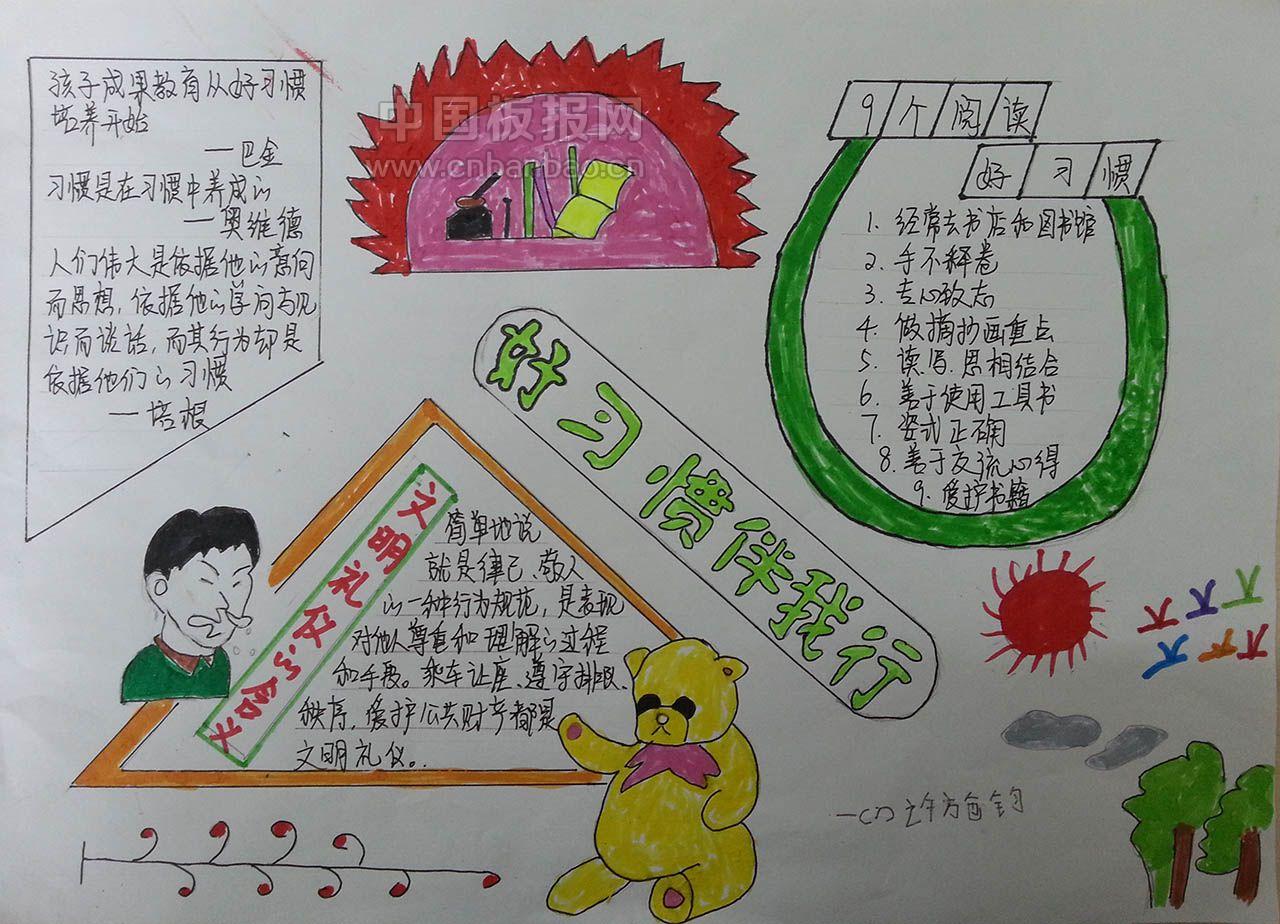 孩子成果教育从好习惯
培养开始
—巴金
习惯是在习惯中养成的
—奥维德
人们伟大是依据他的意向
而思想，依据他的学问与见
识而谈话，而其行为却是
依据他们的习惯
—培根
中国板报网
www.cnbanbao.cn
9个阅读
好习惯
1. 经常去书店和图书馆
2. 手不释卷
3. 专心致志
4. 做摘抄画重点
5. 读、写、思相结合
6. 善于使用工具书
7. 姿式正确
8. 善于交流心得
9. 爱护书籍
好习惯伴我行
文明礼仪的含义
简单地说
就是律己、敬人
的一种行为规范，是表现
对他人尊重和理解的过程
和手段。乘车让座、遵守排队、
秩序，爱护公共财产都是
文明礼仪。